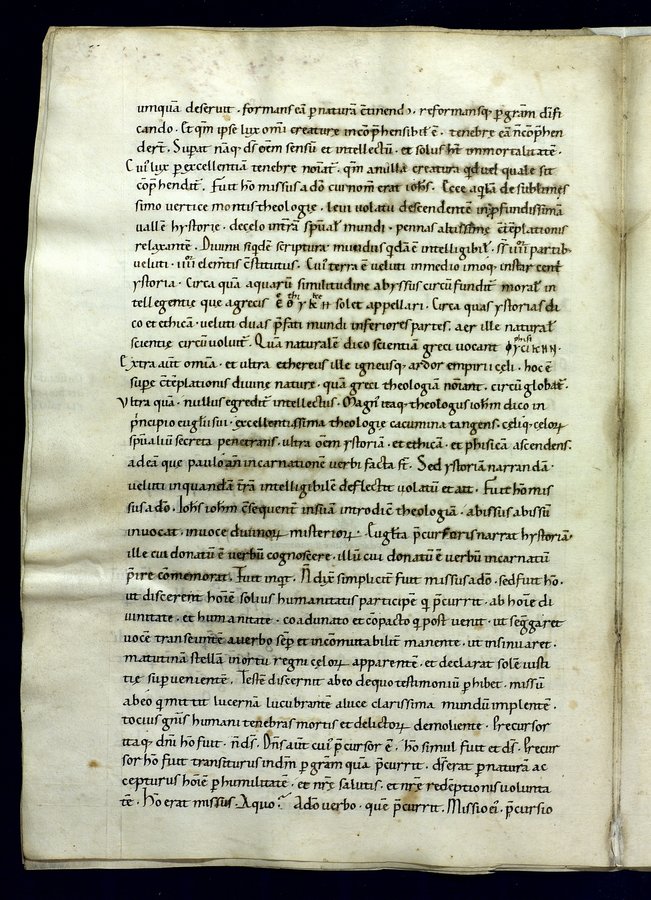 umquā deseruit · formans eā p naturā ꝯtinendo · reformansq; p grām deifi
cando · Et qm̄ ipse lux omī creaturę incōp̄hensibił ē · tenebrę eā ñ cōp̄hen
der̄t · Supat nāq; dſ om̄em sensū et intellectū · et solus ht̄ immortalitatē ·
Cuī lux p excellentiam tenebrę noīat̄ · qm̄ a nulla creatura qd uel quale sit
cōp̄hendit̄ · Fuit hō missus a dō cui nom̄ erat iohs̄ · Ecce aqͥlā de sublimes
simo uertice montis theologię · leui uolatu descendentē in p̄fundissimā
uallē hystorię · de celo in t̄rā spūal mundi · pennas altissimę ꝯtēplationis
relaxantē · Diuina siqͥdē scriptura mundus qͥdā ē intelligibil · ſſ iiiiᵒʳ partib;
ueluti · iiiiᵒʳ elem̄tis ꝯstitutus · Cuī terra ē ueluti in medio imoq; instar cent̄
ystoria · Circa quā aquarū similitudine abyssus circūfundit̄ moral in
tellegentię que a grecis ē θ ΥΚ Η solet appellari · Circa quas ystorias di
co et ethicā · ueluti duas p̄fati mundi inferiores partes · aer ille natural
scientię circūuoluit̄ · Quā naturalē dico scientiā greci uocant φΥCΙΚΗΝ ·
Extra aut̄ omīa · et ultra ęthereus ille igneusq; ardor empirii cęli · hoc ē
supę ꝯtēplationis diuinę naturę · quā greci theologiā noīant · circū globat̄ ·
Vltra quā · nullus egredit̄ intellectus · Magn itaq; theologus iohēm dico in
p̄ncipio euglīi sui · excellentissima theologię cacumina tangens · cęliq; cęloꝝ
spūaliū secreta penetrans · ultra om̄em ystoriā · et ethicā · et phisicā ascendens ·
ad ea que paulo an̄ incarnationē uerbi facta st̄ · Sed ystoriā narrandā ·
ueluti in quandā t̄rā intelligibilē deflectit uolatū et ait · Fuit hō mis
sus a dō · Iohs̄ iohēm ꝯsequent̄ in suā introdic̄ theologiā · abissus abissū
inuocat · in uoce diuinoꝝ misterioꝝ · Euglīta p̄cursoris narrat hystoriā ·
ille cui donatū ē uerbū cognoscere · illū cui donatū ē uerbū incarnatū
p̄ire cōmemorat · Fuit inqͥt · Ñ dix̄ simpliciter̄ fuit missus a dō · sed fuit hō ·
ut discern̄et hoīem solius humanitatis participē q p̄currit · ab hoīe di
uinitate · et humanitate · coadunato et cōpacto q post uenit · ut seg̃garet
uocē transeuntē a uerbo semp̄ et incōmutabilit̄ manente · ut insinuaret ·
matutinā stellā in ortu regni cęloꝝ apparentē · et declarat solē iusti
tię supuenientē · Testē discernit ab eo de quo testimoniū p̄hibet · missū
ab eo q mittit · lucernā lucubrantē a luce clarissima mundū implentē ·
tocius gñis humani tenebras mortis et delictoꝝ demoliente · Precursor
itaq; dñi hō fuit · n̄ dſ · Dñs aut̄ cuī p̄cursor ē · hō simul fuit et dſ · Precur
sor hō fuit transiturus in dm̄ p grām quā p̄currit · dſ erat p naturā ac
cepturus hoīem p humilitatē · et nrę salutis · et nrę redēptionis uolunta
tē · Hō erat missus · A quo? A dō uerbo · quē p̄currit · Missio eī · p̄cursio